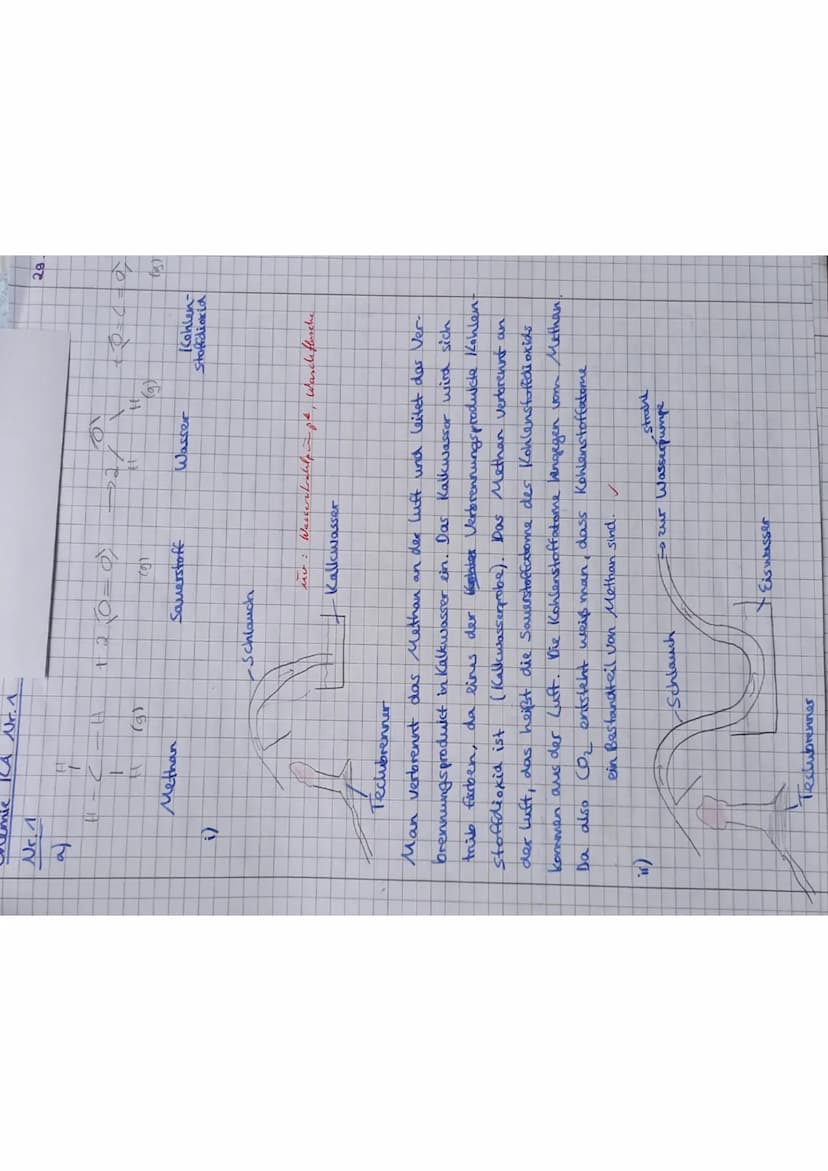 29.
Chemie KA Nr. 1
Nr. 1
a)
H
H - C - H + 2 ⟨O = O⟩ → 2 O + ⟨O = C = O⟩
H (g) (g) H H (g) (g)
Methan Sauerstoff Wasser Kohlen-
stoffdioxid
i)
Schlauch
Kalkwasser
Teclubrenner
Man verbrennt das Methan an der Luft und leitet das Ver-
brennungsprodukt in Kalkwasser ein. Das Kalkwasser wird sich
trüb färben, da eines der Verbrennungsprodukte Kohlen-
stoffdioxid ist (Kalkwasserprobe). Das Methan verbrennt an
der Luft, das heißt die Sauerstoffatome des Kohlenstoffdioxids
kommen aus der Luft. Die Kohlenstoffatome hingegen vom Methan.
Da also CO2 entsteht weiß man, dass Kohlenstoffatome
ein Bestandteil von Methan sind. ✓
ii)
Schlauch
→ zur Wasserstrahlpumpe
Eiswasser
Teclubrenner